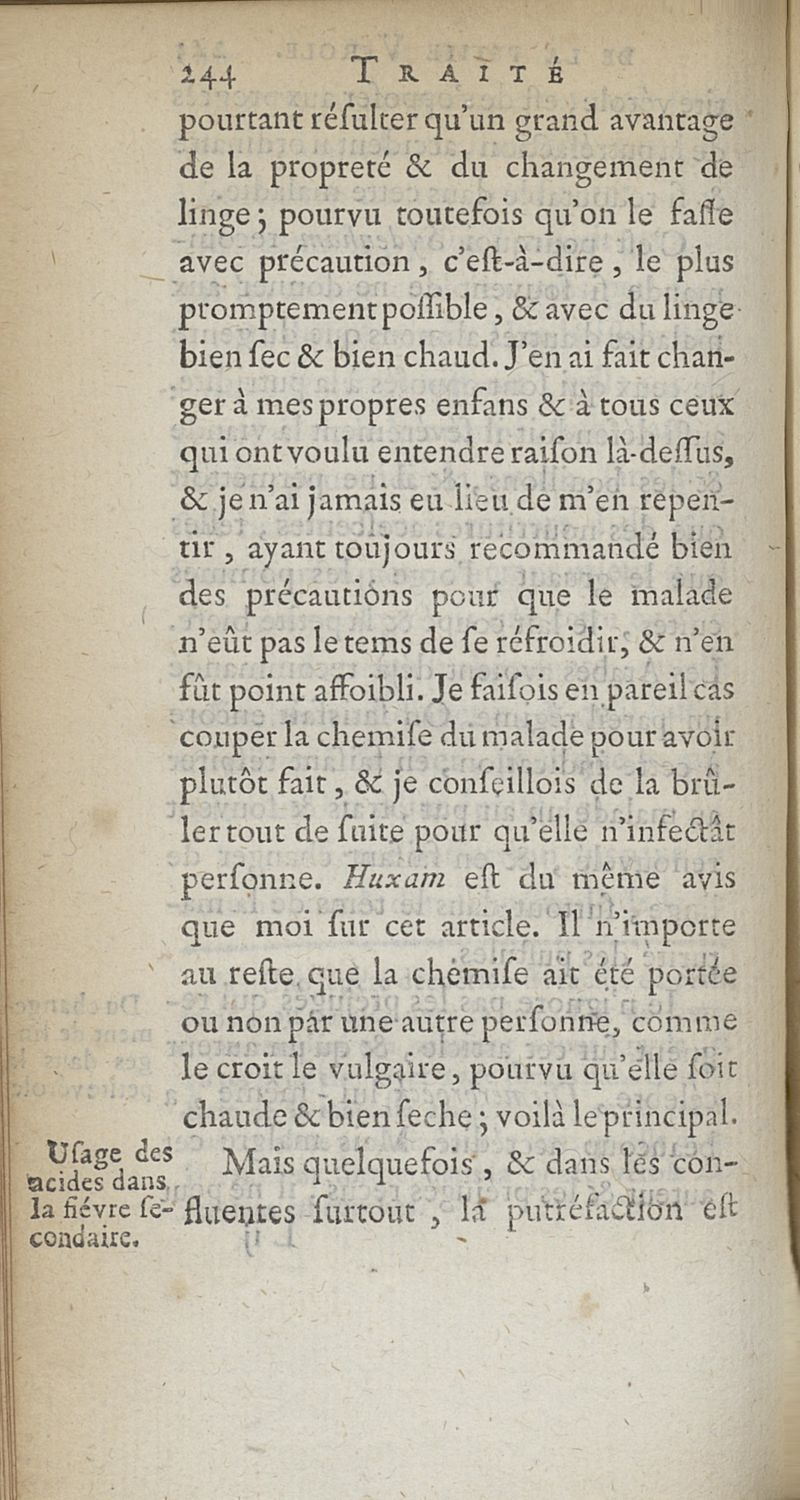 244 TRAITÉ
pourtant réſulter qu'un grand avantage
de la propreté & du changement de
linge; pourvu toutefois qu'on le faſſe
avec précaution, c'eſt-à-dire, le plus
promptement poſſible, & avec du linge
bien ſec & bien chaud. J'en ai fait chan-
ger à mes propres enfans & à tous ceux
qui ont voulu entendre raiſon là-deſſus,
& je n'ai jamais eu lieu de m'en repen-
tir, ayant toujours recommandé bien
des précautions pour que le malade
n'eût pas le tems de ſe réfroidir, & n'en
fût point affoibli. Je faiſois en pareil cas
couper la chemiſe du malade pour avoir
plutôt fait, & je conſeillois de la brû-
ler tout de ſuite pour qu'elle n'infectât
perſonne. Huxam eſt du même avis
que moi ſur cet article. Il n'importe
au reſte que la chemiſe ait été portée
ou non par une autre perſonne, comme
le croit le vulgaire, pourvu qu'elle ſoit
chaude & bien ſeche; voilà le principal.
Uſage des
acides dans
la fiévre ſe-
condaire.
Mais quelquefois, & dans les con-
fluentes ſurtout, la putréfaction eſt